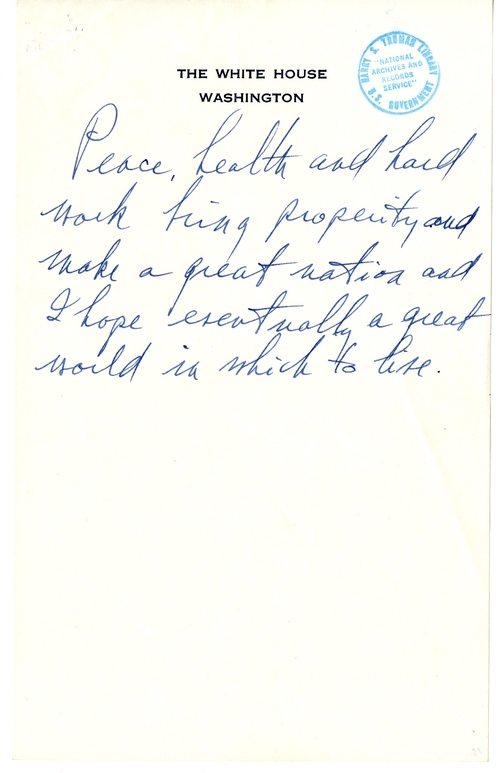 THE WHITE HOUSE
WASHINGTON
HARRY S. TRUMAN LIBRARY
"NATIONAL
ARCHIVES AND
RECORDS
SERVICE"
U.S. GOVERNMENT
Peace, health and hard
work bring properity and
make a great nation and
I hope eventually a great
world in which to live.